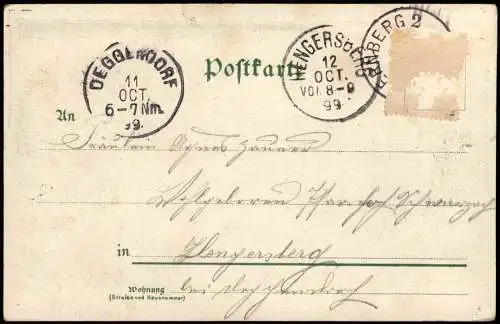 DEGGENDORF
11
OCT.
6-7 Nm.
99.
Postkarte
HENGERSBERG
12
OCT.
VOR. 8-9
99
NBERG 2
An
Fräulein Agnes
Wohlgeboren Pfarrhof Schwarzach
in Hengersberg
bei Deggendorf
Wohnung
(Strasse und Hausnummer)